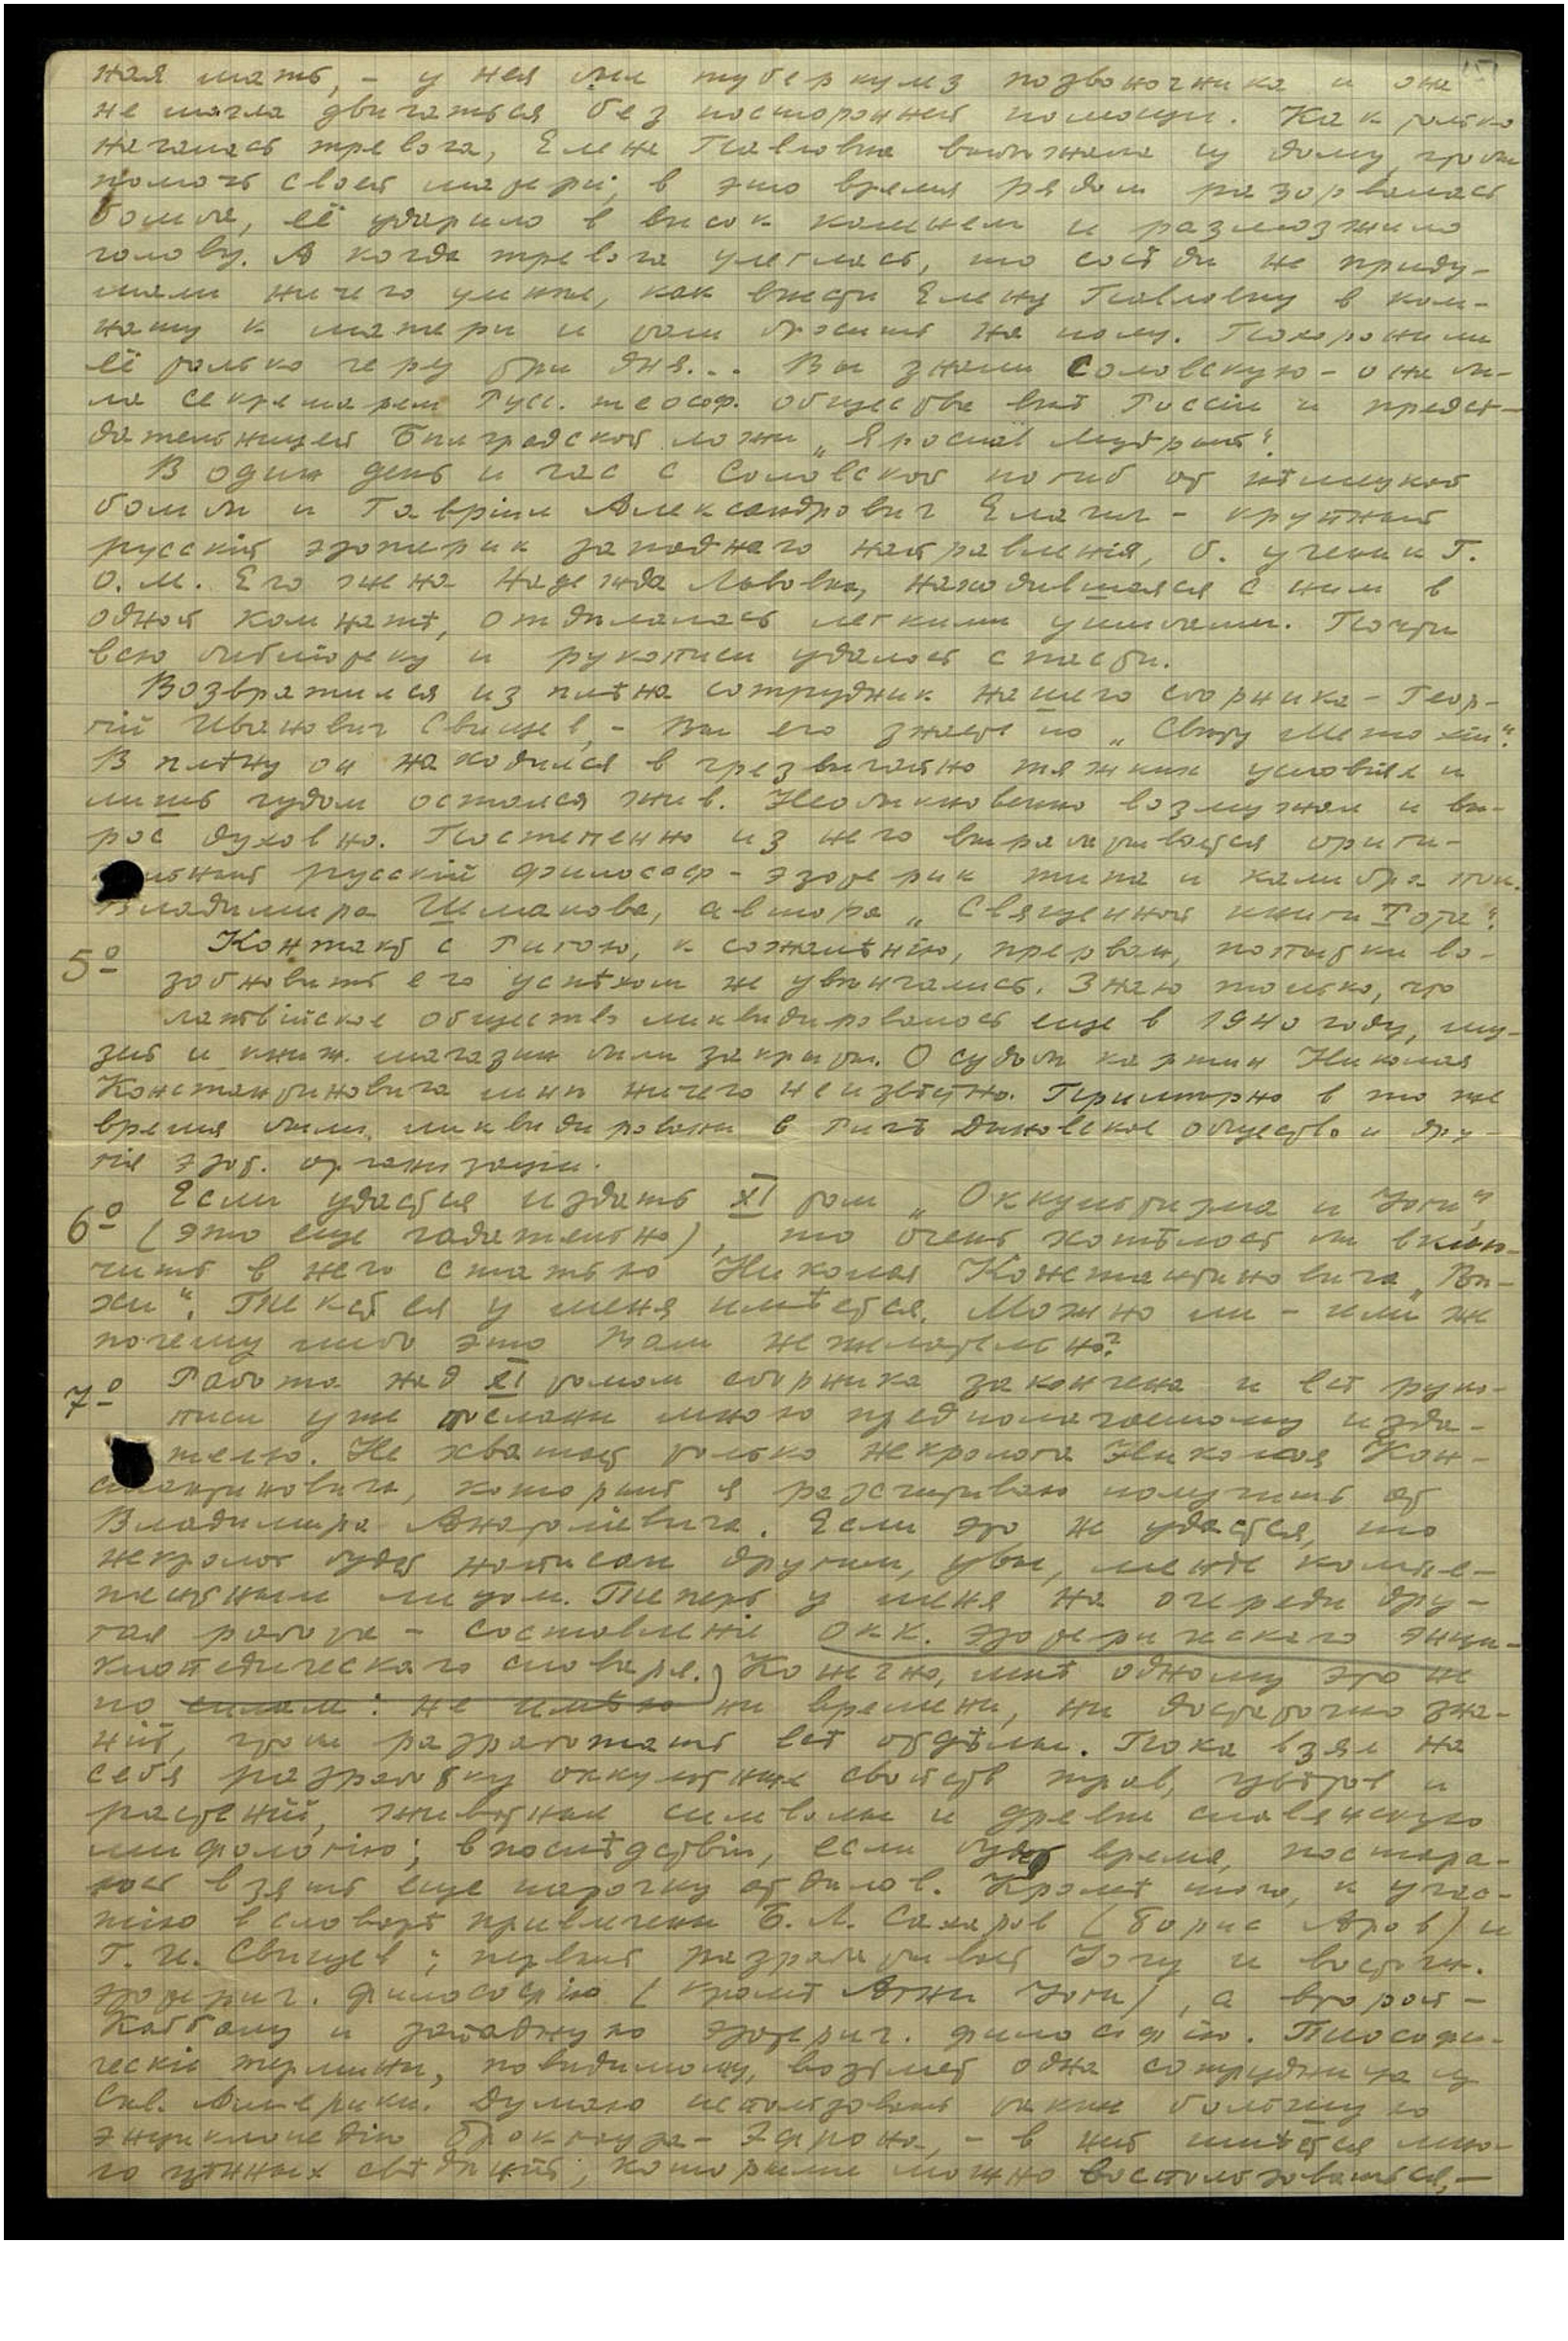 ная мать, – у нея был туберкулез позвоночника и она
не могла двигаться без посторонней помощи. Как только
началась тревога, Елена Павловна выбежала из дому, чтобы
помочь своей матери; в это время рядом разорвалась
бомба, её ударило в висок камнем и размозжило
голову. А когда тревога улеглась, то сосѣди не приду-
мали ничего умнѣе, как внести Елену Павловну в ком-
нату к матери и там бросить на полу. Похоронили
её только через три дня... Вы знали Соловскую – она бы-
ла секретарем Русс. теософ. общества внѣ Россіи и предсѣ-
дательницей Бѣлградской ложи „Ярослав Мудрый“.
В один день и час с Соловской погиб от нѣмецкой
бомбы и Гавріил Александрович Елагин – крупный
русскій эзотерик западнаго направленія, б. ученик Г.
О. М. Его жена Надежда Львовна, находившаяся с ним в
одной комнатѣ, отдѣлалась легкими ушибами. Почти
всю библіотеку и рукописи удалось спасти.
Возвратился из плѣна сотрудник нашего сборника – Геор-
гій Иванович Свищев, – Вы его знаете по „Свѣту Метохіи“.
В плѣну он находился в чрезвычайно тяжких условіях и
лишь чудом остался жив. Необыкновенно возмужал и вы-
рос духовно. Постепенно из него вырабатывается ориги-
нальный русскій философ-эзотерик типа и калибра пок.
Владимира Шмакова, автора „Священной книги Тота“.
5º Контакт с Ригою, к сожалѣнію, прерван, попытки во-
зобновить его успѣхом не увѣнчались. Знаю только, что
латвійское общество ликвидировалось еще в 1940 году, му-
зей и книж. магазин были закрыты. О судьбѣ картин Николая
Константиновича мнѣ ничего неизвѣстно. Примѣрно в то же
время были ликвидированы в Ригѣ Дыновское общество и дру-
гія эзот. организаціи.
6º Если удастся издать XI том „Оккультизма и Іоги“,
(это еще гадательно), то очень хотѣлось бы вклю-
чить в него статью Николая Константиновича „Вѣ-
хи“. Текст ея у меня имѣется. Можно ли – или же
почему либо это Вам нежелательно?
7º Работа над XI томом сборника закончена и всѣ руко-
писи уже посланы мною предполагаемому изда-
телю. Не хватает только некролога Николая Кон-
стантиновича, который я разсчитываю получить от
Владимира Анатольевича. Если это не удастся, то
некролог будет написан другим, увы, менѣе компе-
тентным лицом. Теперь у меня на очереди дру-
гая работа – составленіе окк. эзотерическаго энци-
клопедическаго словаря. Конечно, мнѣ одному это не
по силам: не имѣю ни времени, ни достаточно зна-
ній, чтобы разработать всѣ отдѣлы. Пока взял на
себя разработку оккультных свойств трав, цвѣтов и
растеній, животных символы и древне славянскую
мифологію; впослѣдствіи, если будет время, постара-
юсь взять еще парочку отдѣлов. Кромѣ того, к учас-
тію в словарѣ привлечены Б. Л. Сахаров (Борис Аров) и
Г. И. Свищев; первый разрабатывает Іогу и восточн.
эзотерич. философію (кромѣ Агни Іоги), а второй –
Каббалу и западную эзотерич. философію. Теософи-
ческіе термины, повидимому, возьмет одна сотрудница из
Сѣв. Америки. Думаю использовать также большую
энциклопедію Брокгауза – Эфрона, – в ней имѣется мно-
го цѣнных свѣдѣній, которыми можно воспользоваться, –